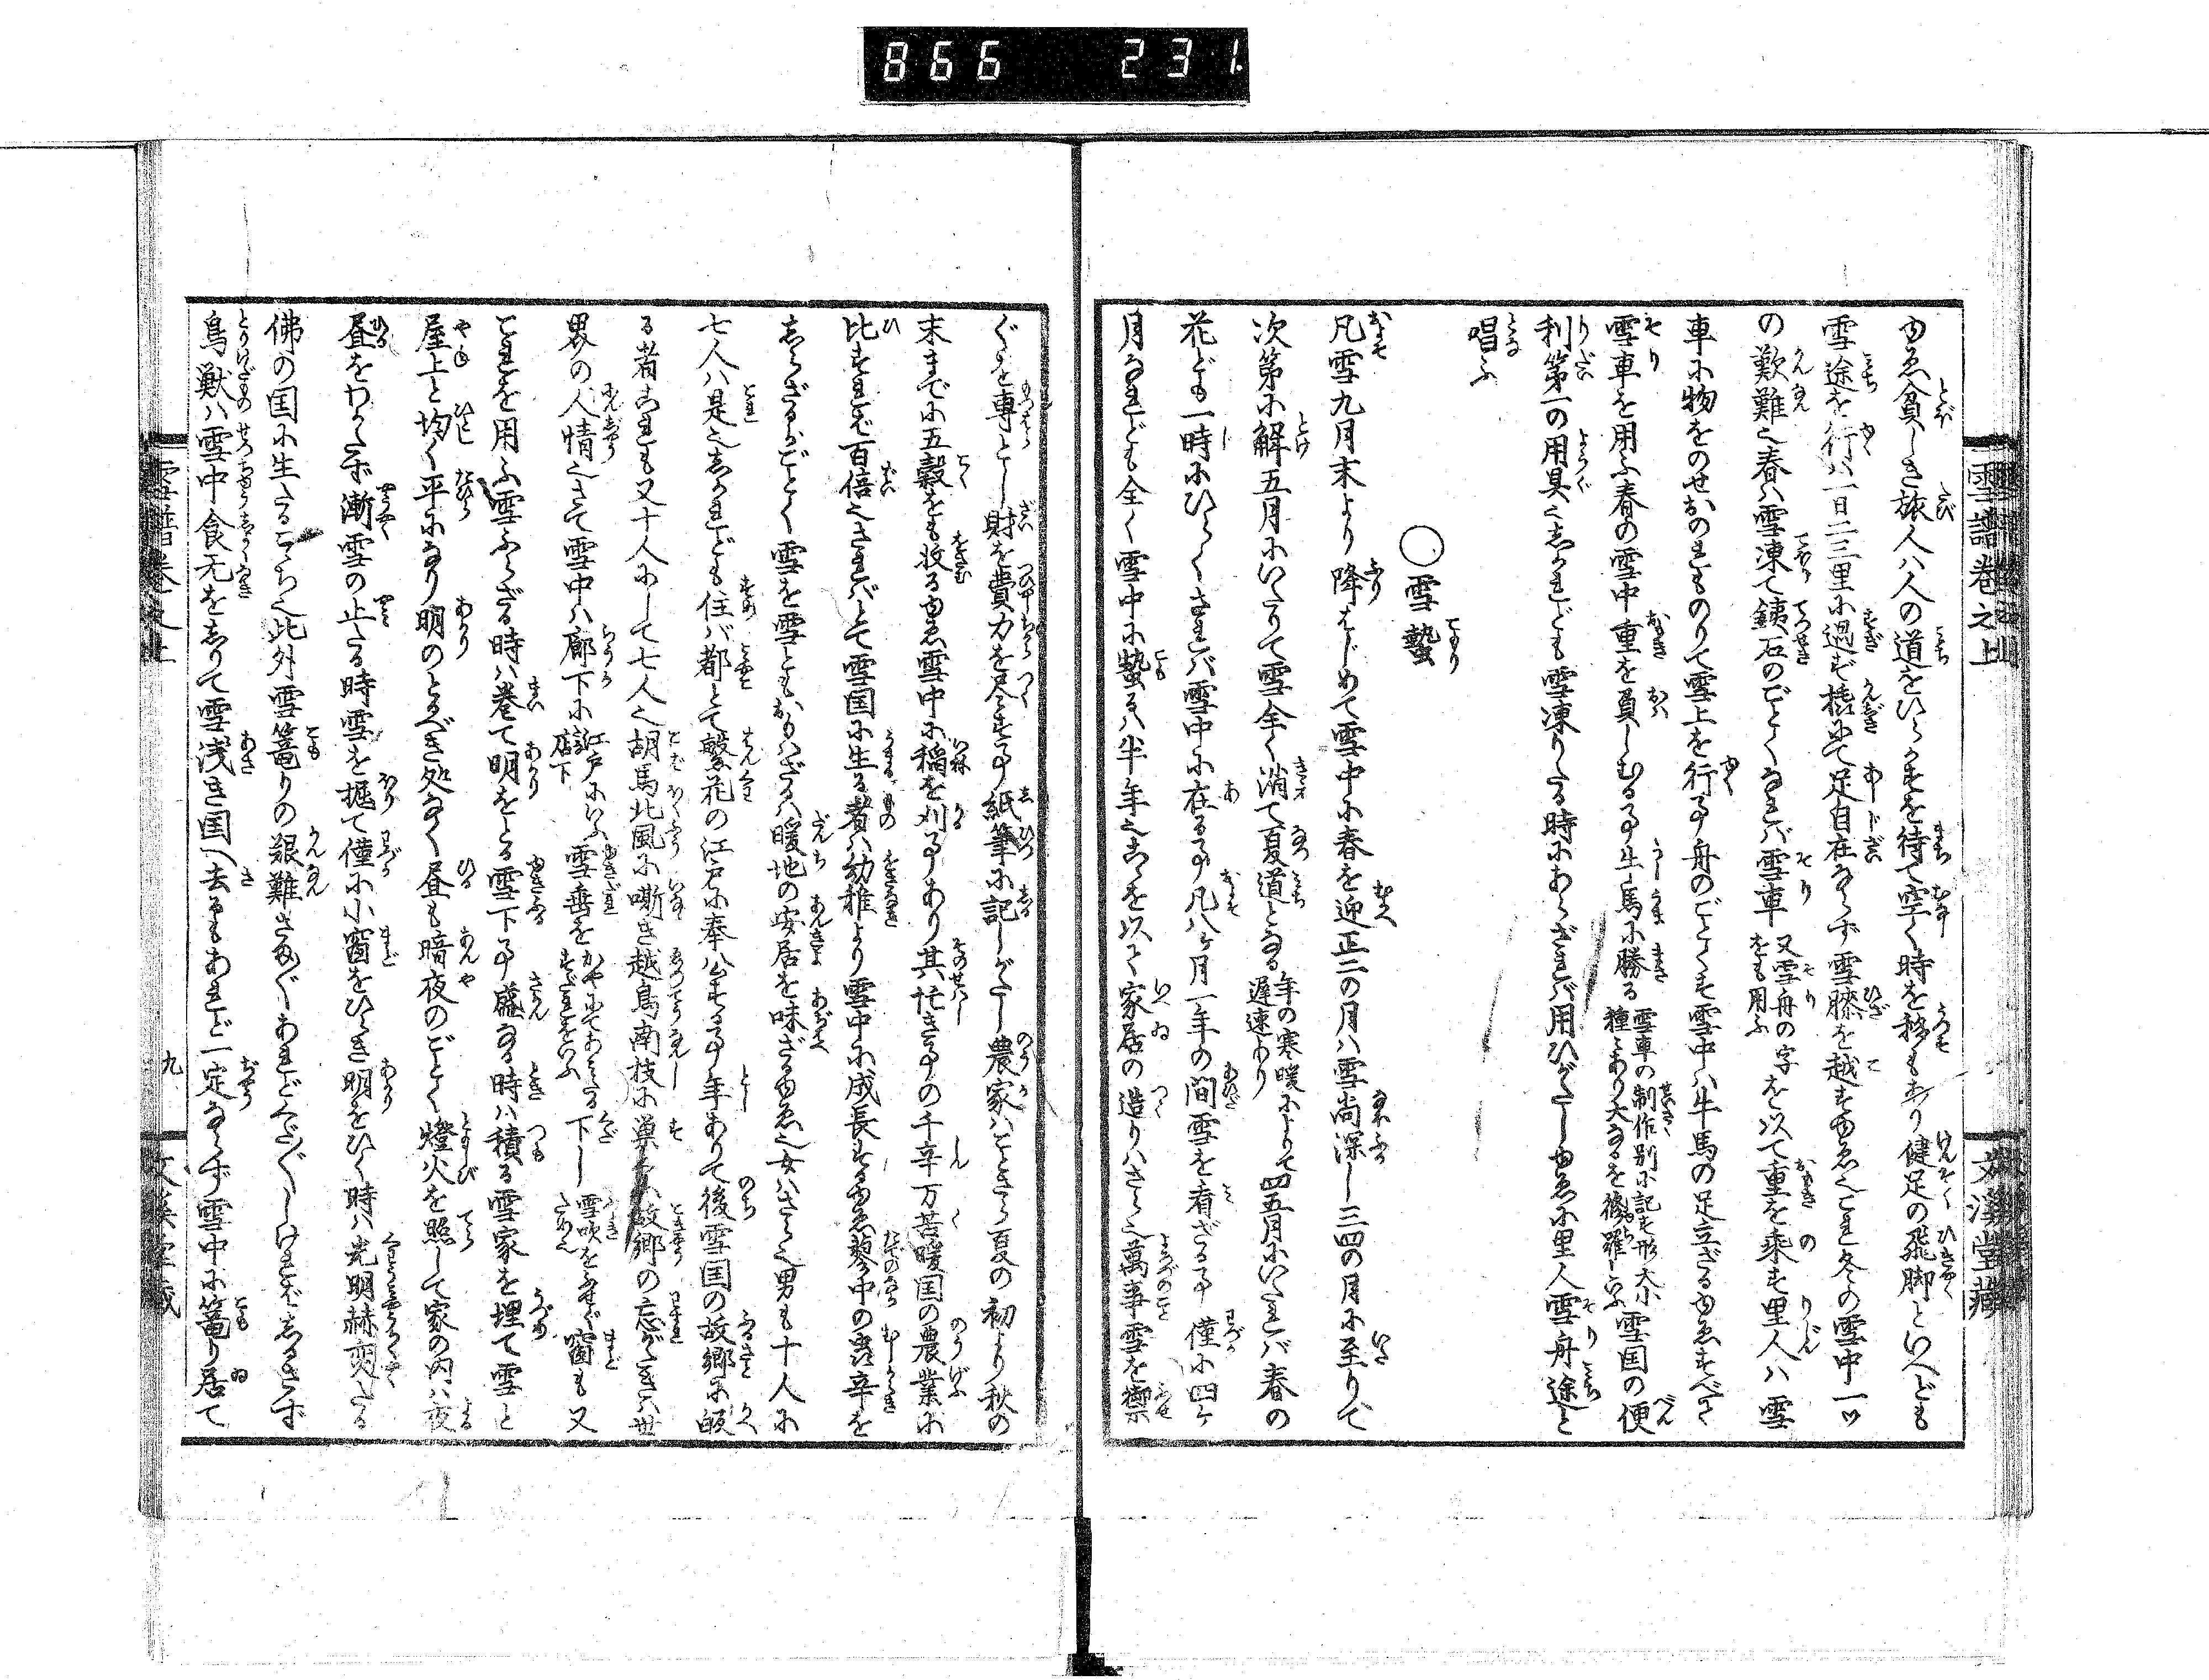 866 231.
雪譜巻之上
文溪堂藏
ゆゑ貧しき旅人ハ人の道をひらくを待て空く時を移もあり健足の飛脚といへども
雪途を行ハ一日二三里に過ず橇にて足自在ならず雪膝を越すゆゑ也これ冬の雪中一ツ
の艱難也春ハ雪凍て鉄石のごとくなれバ雪車又雪舟の字をも用ふを以て重を乗す里人ハ雪
車に物をのせおのれものりて雪上を行事舟のごとくす雪中ハ牛馬の足立ざるゆゑすべて
雪車を用ふ春の雪中重を負しむる事牛馬に勝る雪車の制作別に記す形大小種々あり大なるを修羅といふ雪国の便
利第一の用具也しかれども雪凍りたる時にあらざれバ用ひがたしゆゑに里人雪舟途と
唱ふ
○雪蟄
凡雪九月末より降はじめて雪中に春を迎正二の月ハ雪尚深し三四の月に至りて
次第に解五月にいたりて雪全く消て夏道となる年の寒暖によりて遅速あり四五月にいたれバ春の
花ども一時にひらくされバ雪中に在る事凡八ヶ月一年の間雪を看ざる事僅に四ヶ
月なれども全く雪中に蟄るハ半年也こゝを以て家居の造りハさら也萬事雪を禦
ぐを専とし財を費力を尽す事紙筆に記しがたし農家ハことさら夏の初より秋の
末までに五穀をも收るゆゑ雪中に稲を刈事あり其忙き事の千辛万苦暖国の農業に
比すれバ百倍也さればとて雪国に生る者ハ幼稚より雪中に成長するゆゑ蓼中の虫辛を
しらざるがごとく雪を雪ともおもハざるハ暖地の安居を味ざるゆゑ也女ハさら也男も十人に
七人ハ是也しかれども住バ都とて繁花の江戸に奉公する事年ありて後雪国の故郷に皈
る者これも又十人にして七人也胡馬北風に嘶き越鳥南枝に巣くふ故郷の忘がたきハ世
界の人情也さて雪中ハ廊下に江戸にいふ店下雪垂をかやにてあみたるすだれをいふ下し雪吹をふせぐため也窗も又
これを用ふ雪ふらざる時ハ巻て明をとる雪下事盛なる時ハ積る雪家を埋て雪と
屋上と均く平になり明のとるべき処なく昼も暗夜のごとく燈火を照して家の内ハ夜
昼をわかたず漸雪の止たる時雪を掘て僅に小窗をひらき明をひく時ハ光明赫奕たる
佛の国に生たるこゝち也此外雪篭りの艱難さま〴〵あれどくだ〳〵しけれバしるさず
鳥獣ハ雪中食无をしりて雪浅き国へ去るもあれど一定ならず雪中に篭り居て
雪譜巻之上
九
文溪堂藏